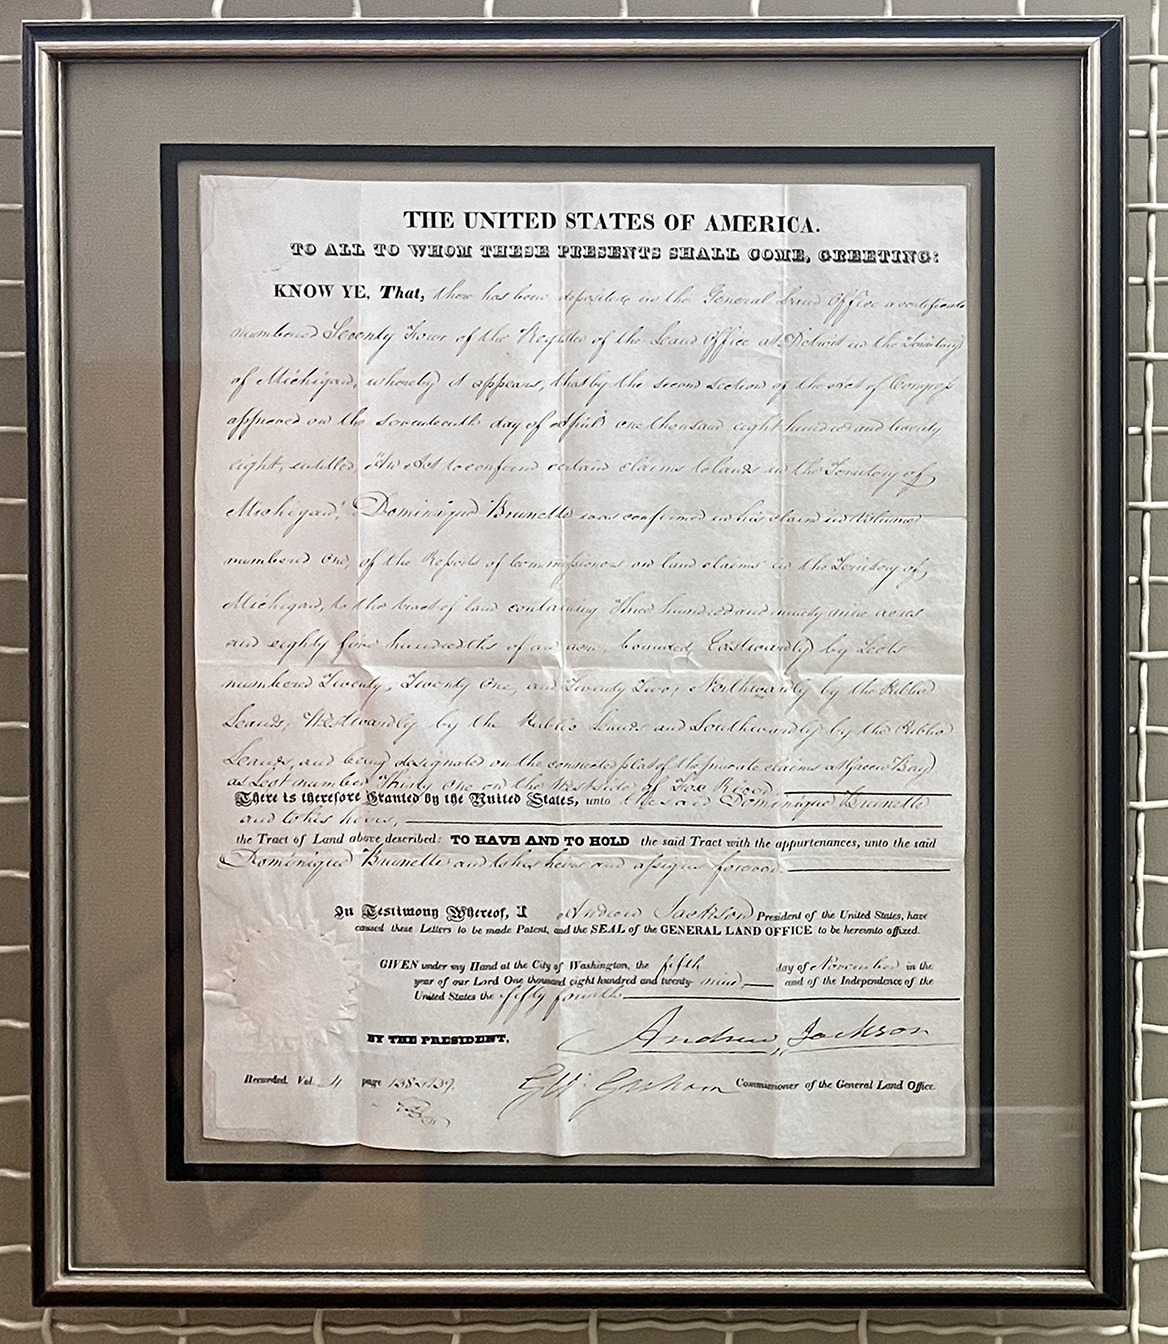 THE UNITED STATES OF AMERICA.
TO ALL TO WHOM THESE PRESENTS SHALL COME, GREETING:
KNOW YE, That, there has been deposited in the General Land Office a certificate
numbered Seventy Four of the Register of the Land Office at Detroit in the Territory
of Michigan, whereby it appears, that by the second section of the act of Congress
approved on the seventeenth day of April one thousand eight hundred and twenty
eight, entitled, An Act to confirm certain claims to lands in the Territory of
Michigan, Dominique Brunette was confirmed in his claim in Volume
numbered one, of the Reports of Commissioners on land claims in the Territory of
Michigan, to the tract of land containing Three hundred and ninety nine acres
and eighty five hundredths of an acre, bounded, Eastwardly by Lots
numbered Twenty, Twenty One, and Twenty Two, Northwardly by the Public
Lands, Westwardly by the Public Lands and Southwardly by the Public
Lands, and being designated on the connected plat of the private claims at Green Bay
as Lot number Thirty One on the West side of Fox River.
There is therefore Granted by the United States, unto the said Dominique Brunette
and to his heirs,
the Tract of Land above described: TO HAVE AND TO HOLD the said Tract with the appurtenances, unto the said
Dominique Brunette and to his heirs and assigns forever.
In Testimony Whereof, I Andrew Jackson President of the United States, have
caused these Letters to be made Patent, and the SEAL of the GENERAL LAND OFFICE to be hereunto affixed.
GIVEN under my Hand at the City of Washington, the fifth day of November in the
year of our Lord One thousand eight hundred and twenty nine and of the Independence of the
United States the fifty fourth
BY THE PRESIDENT, Andrew Jackson
G W Graham Commissioner of the General Land Office.
Recorded, Vol. 4 page 138 139.